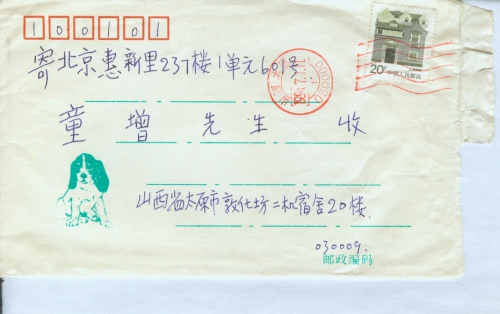 100101
寄北京惠新里237楼1单元601号
20分 中国人民邮政
童增先生 收
山西省太原市敦化坊二机宿舍20楼
030009.
邮政编码